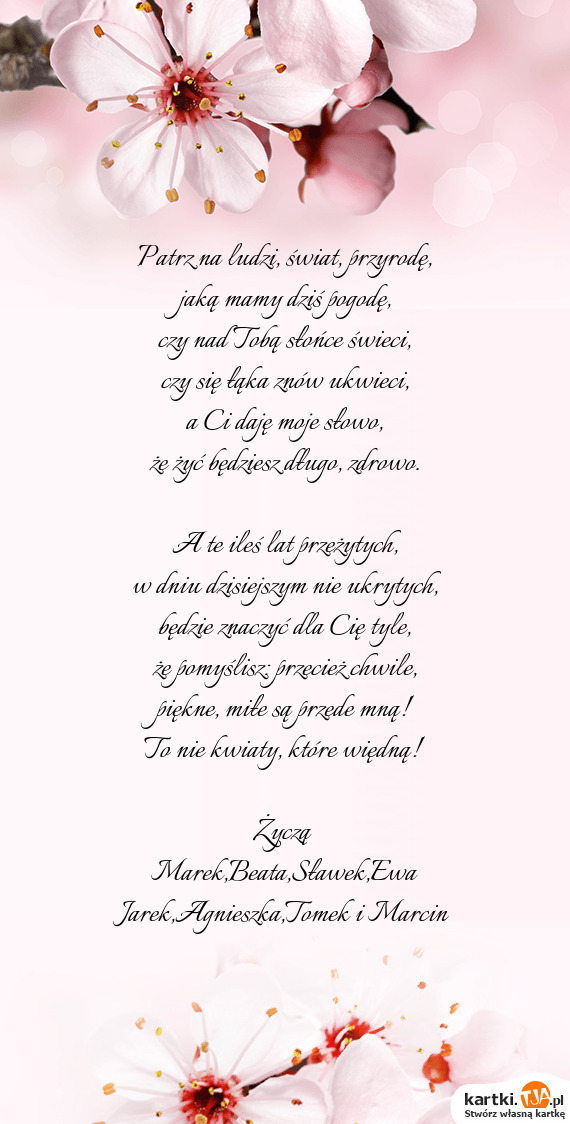 Patrz na ludzi, świat, przyrodę,
jaką mamy dziś pogodę,
czy nad Tobą słońce świeci,
czy się łąka znów ukwieci,
a Ci daję moje słowo,
że żyć będziesz długo, zdrowo.
A te ileś lat przeżytych,
w dniu dzisiejszym nie ukrytych,
będzie znaczyć dla Cię tyle,
że pomyślisz: przecież chwile,
piękne, miłe są przede mną!
To nie kwiaty, które więdną!
Życzą
Marek,Beata,Sławek,Ewa
Jarek,Agnieszka,Tomek i Marcin
kartki.TJA.pl
Stwórz własną kartkę